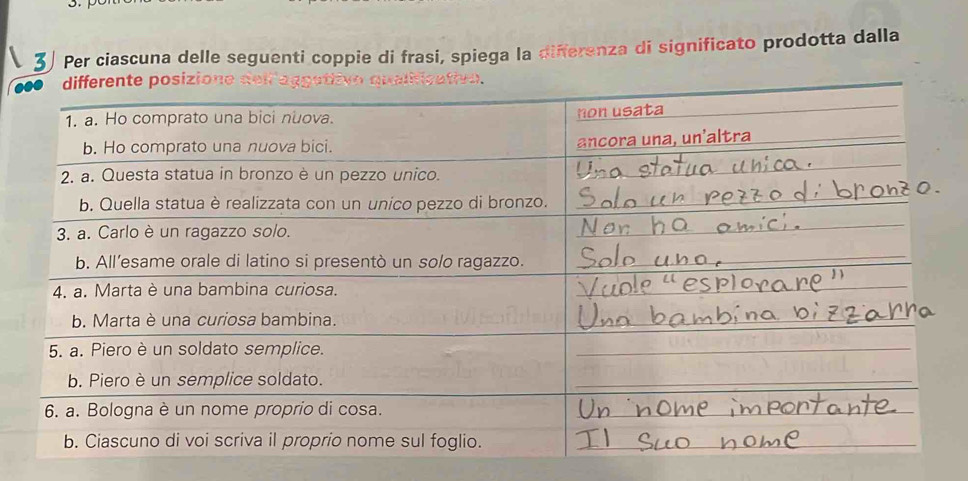 3 Per ciascuna delle seguenti coppie di frasi, spiega la differenza di significato prodotta dalla
differente posizione dell'aggettivo qualificativo.
1. a. Ho comprato una bici nuova. non usata
b. Ho comprato una nuova bici. ancora una, un'altra
2. a. Questa statua in bronzo è un pezzo unico. Una statua unica.
b. Quella statua è realizzata con un unico pezzo di bronzo. Solo un pezzo di bronzo.
3. a. Carlo è un ragazzo solo. Non ha amici.
b. All'esame orale di latino si presentò un solo ragazzo. Solo uno.
4. a. Marta è una bambina curiosa. Vuole "esplorare"
b. Marta è una curiosa bambina. Una bambina bizzarra
5. a. Piero è un soldato semplice.
b. Piero è un semplice soldato.
6. a. Bologna è un nome proprio di cosa. Un nome importante
b. Ciascuno di voi scriva il proprio nome sul foglio. Il suo nome